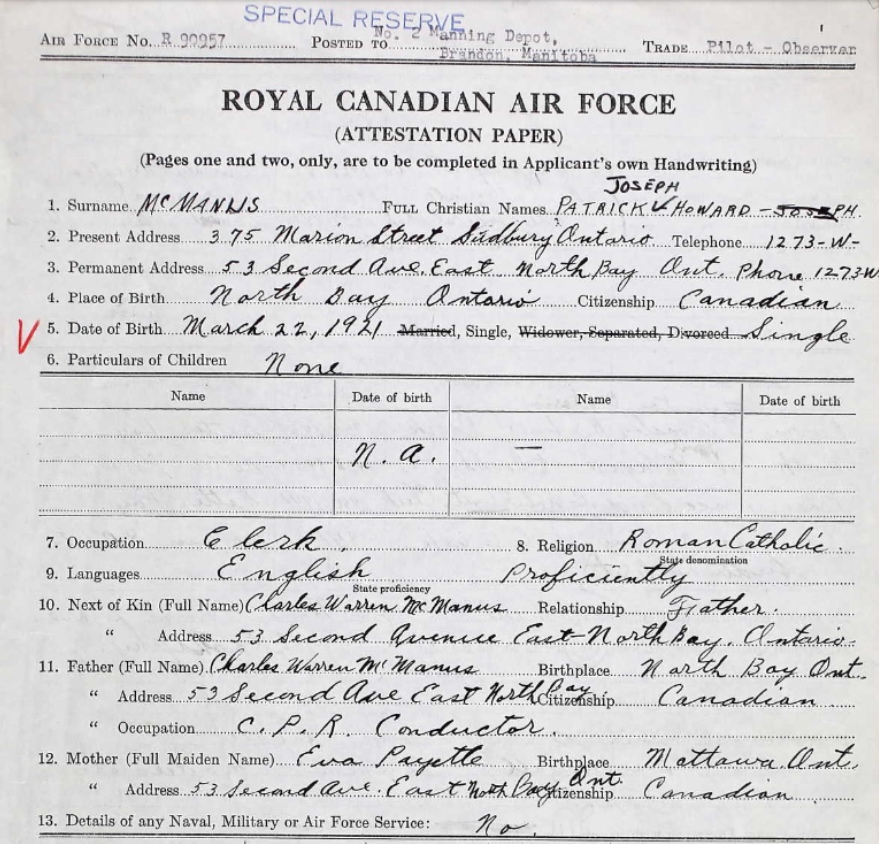 SPECIAL RESERVE
AIR FORCE No. R 90957 POSTED TO No. 2 Manning Depot, Brandon, Manitoba TRADE Pilot - Observer
ROYAL CANADIAN AIR FORCE
(ATTESTATION PAPER)
(Pages one and two, only, are to be completed in Applicant's own Handwriting)
JOSEPH
1. Surname McMANUS FULL Christian Names PATRICK HOWARD - JOSEPH
2. Present Address 375 Marion Street Sudbury Ontario Telephone 1273-W-
3. Permanent Address 53 Second Ave. East North Bay Ont. Phone 1273W
4. Place of Birth North Bay Ontario Citizenship Canadian
5. Date of Birth March 22, 1921 Married, Single, Widower, Separated, Divorced Single
6. Particulars of Children None
Name Date of birth Name Date of birth
N.A. —
7. Occupation Clerk. 8. Religion Roman Catholic.
State denomination
9. Languages English Proficiently
State proficiency
10. Next of Kin (Full Name) Charles Warren McManus Relationship Father.
" Address 53 Second Avenue East North Bay. Ontario.
11. Father (Full Name) Charles Warren McManus Birthplace North Bay Ont.
" Address 53 Second Ave East North Bay Citizenship Canadian
" Occupation C.P.R. Conductor.
12. Mother (Full Maiden Name) Eva Payette Birthplace Mattawa. Ont.
" Address 53 Second Ave. East North Bay Ont. Citizenship Canadian
13. Details of any Naval, Military or Air Force Service: No.